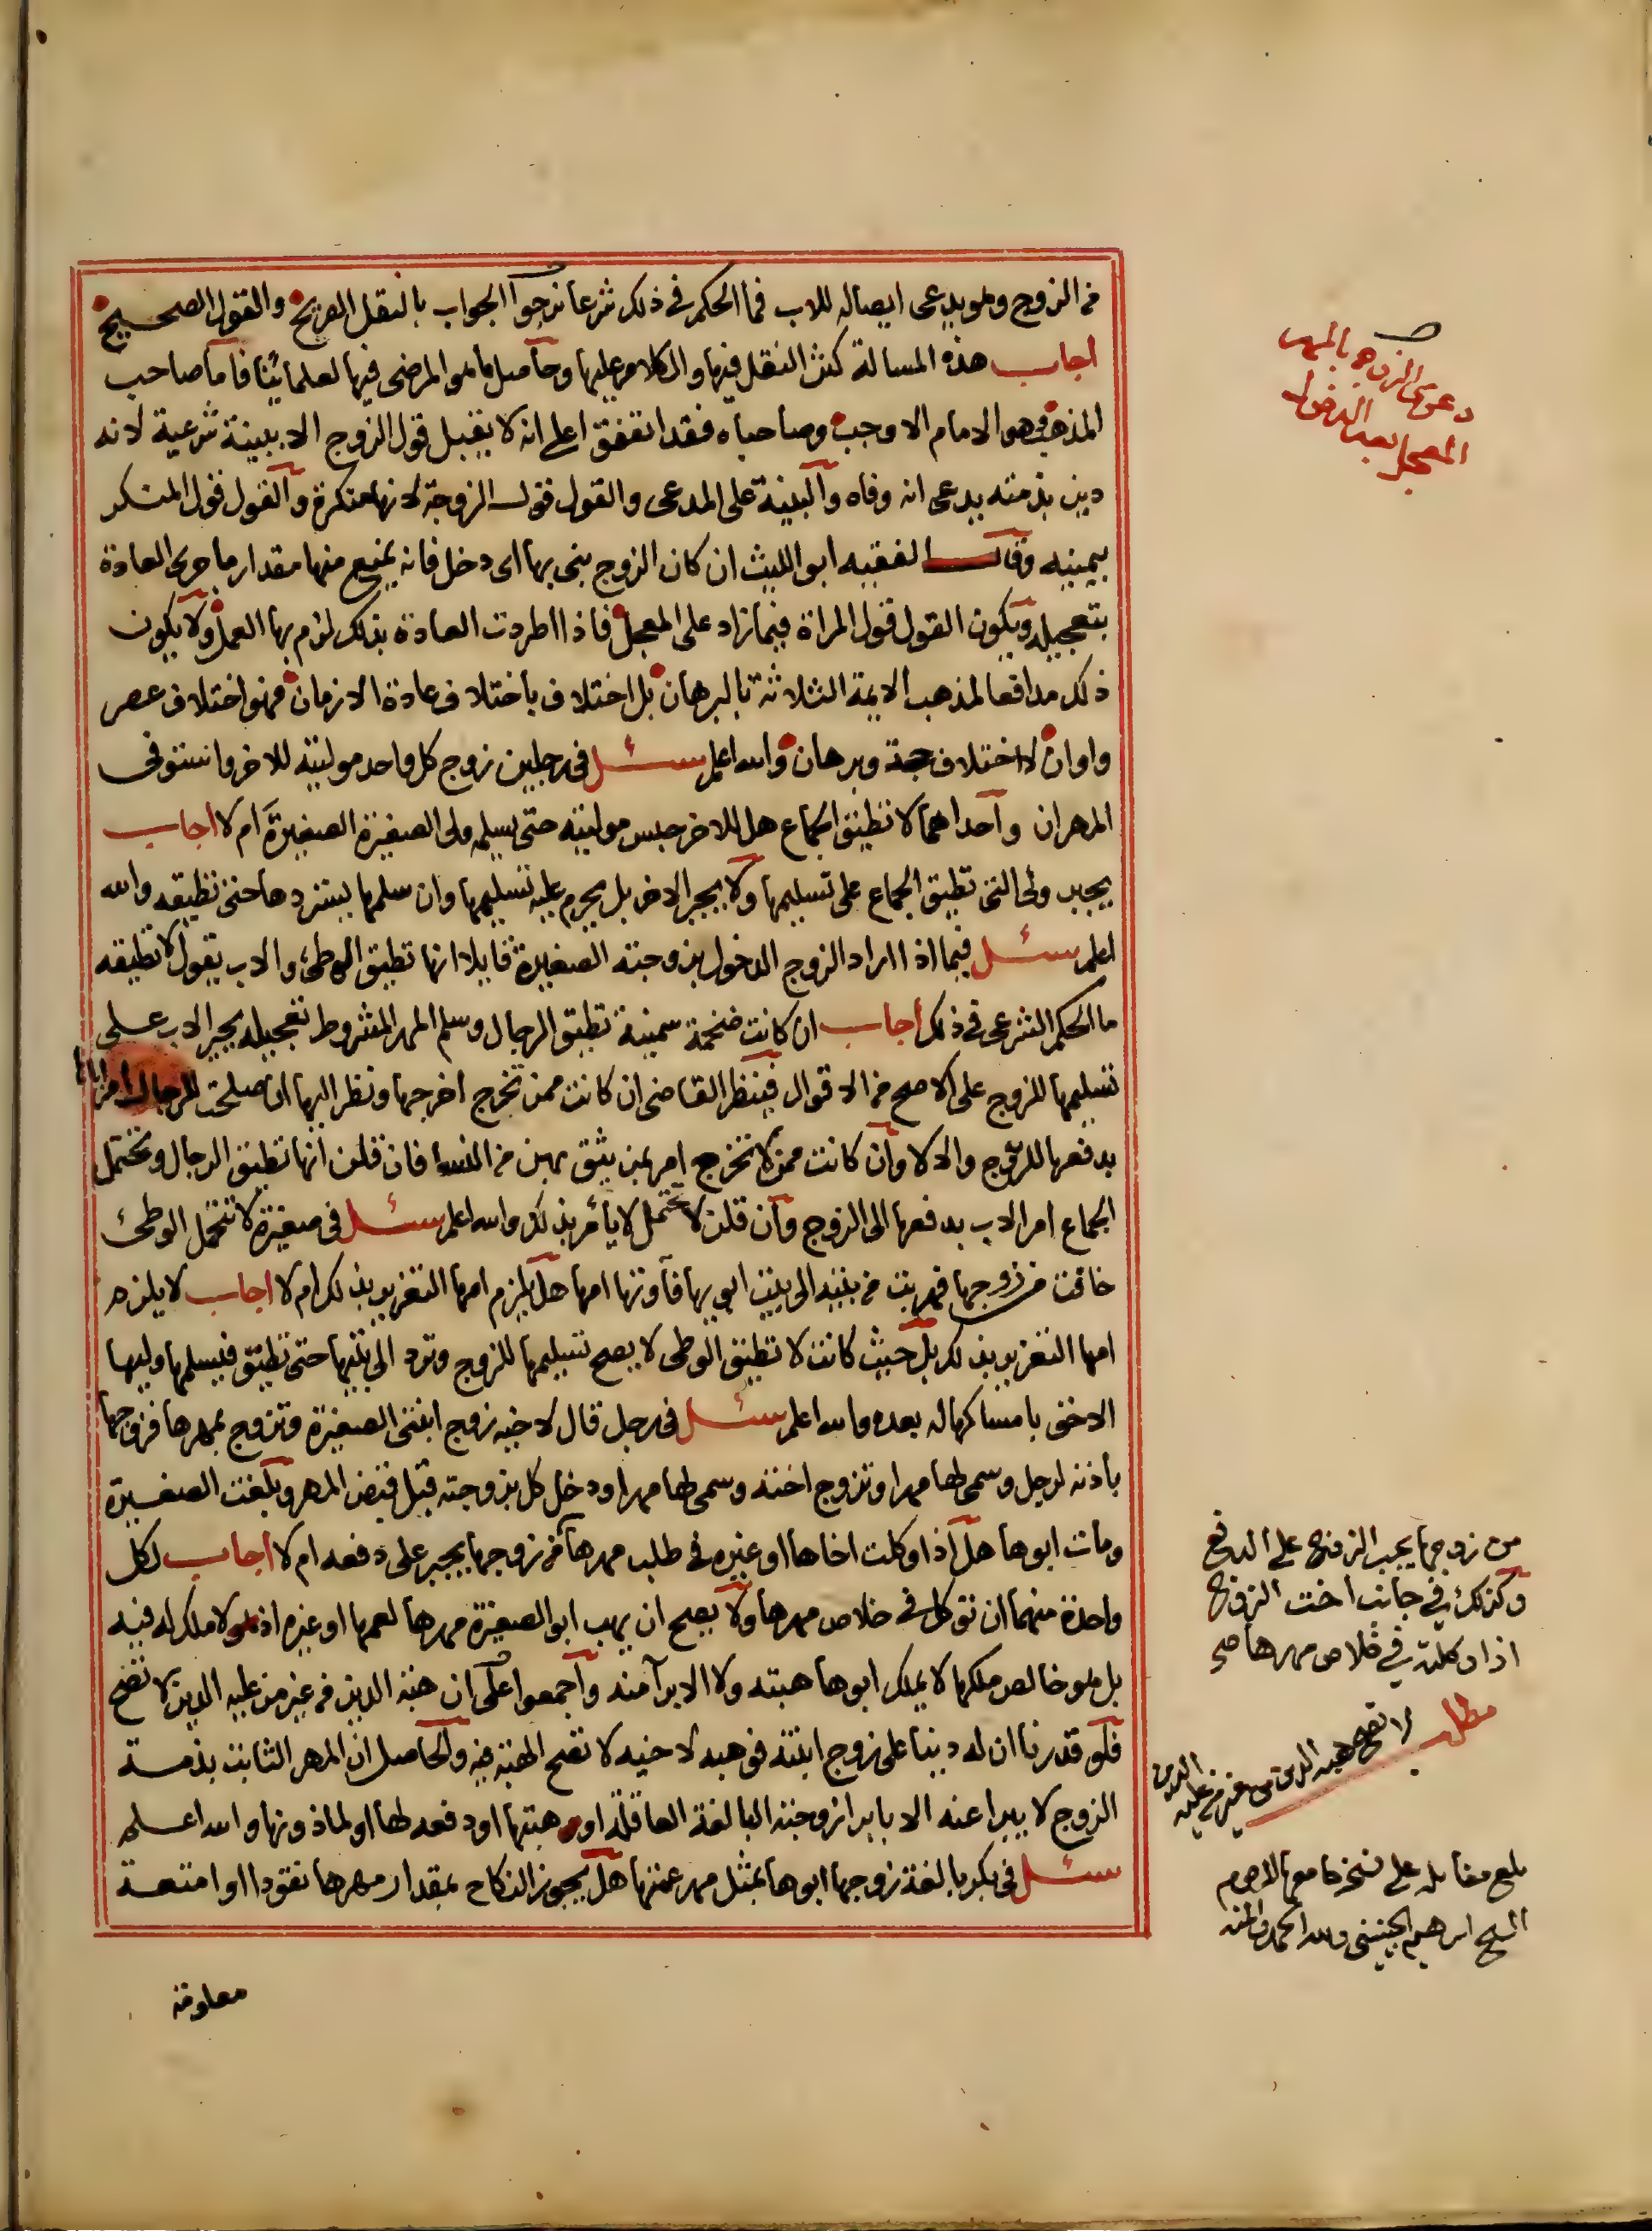 من الزوج وهو يدعى ايصاله للاب فما الحكم في ذلك شرعا نرجوا الجواب بالنقل الصريح والقول الصحيح
اجاب هذه المسالة كثر النقل فيها والكلام عليها وحاصل ما هو المرضى فيها لعلمائنا فاما صاحب
المذهب فهو الامام الاوجب وصاحباه فقد اتفقوا على انه لا يقبل قول الزوج الا ببينة شرعية لانه
دين بذمته يدعى انه وفاه والبينة على المدعى والقول قول الزوجة لانها منكرة والقول قول المنكر
بيمينه وقال الفقيه ابو الليث ان كان الزوج بنى بها اى دخل فانه يمنع منها مقدار ما جرى العادة
بتعجيله ويكون القول قول المراة فيما زاد على المعجل فاذا اطردت العادة بذلك لزم بها العمل ولا يكون
ذلك مدافعا لمذهب الايمة الثلاثة بالبرهان بل اختلاف باختلاف عادة الازمان فهو اختلاف عصر
واوان لا اختلاف حجة وبرهان والله اعلم سئل في رجلين زوج كل واحد موليته للاخر واستوفى
المهران واحداهما لا تطيق الجماع هل للاخر حبس موليته حتى يسلم ولى الصغيرة الصغيرة ام لا اجاب
يجبر ولى التى تطيق الجماع على تسليمها ولا يجبر الاخر بل يحرم عليه تسليمها وان سلمها يستردها حتى تطيقه والله
اعلم سئل فيما اذا اراد الزوج الدخول بزوجته الصغيرة قايلا انها تطيق الوطئ والاب يقول لا تطيقه
ما الحكم الشرعى في ذلك اجاب ان كانت ضخمة سمينة تطيق الرجال وسلم المهر المشروط تعجيله يجبر الاب على
تسليمها للزوج على الاصح من الاقوال فينظر القاضى ان كانت ممن تخرج اخرجها ونظر اليها ان صلحت للرجال امر اباها
بدفعها للزوج والا لا وان كانت ممن لا تخرج امر بمن يثق بهن من النسا فان قلن انها تطيق الرجال وتحتمل
الجماع امر الاب بدفعها الى الزوج وان قلن لا تحتمل لا يأمر بذلك والله اعلم سئل في صغيرة لا تتحمل الوطئ
خافت من زوجها فهربت من بيته الى بيت ابويها فآوتها امها هل يلزم امها التعزير بذلك ام لا اجاب لا يلزم
امها التعزير بذلك بل حيث كانت لا تطيق الوطى لا يصح تسليمها للزوج وترد الى بيتها حتى تطيق فيسلمها وليها
الاحق بامساكها له بعده والله اعلم سئل في رجل قال لاخيه زوج ابنتى الصغيرة وتزوج بمهرها فزوجها
باذنه لرجل وسمى لها مهرا وتزوج اخته وسمى لها مهرا ودخل كل بزوجته قبل قبض المهر وبلغت الصغيرة
ومات ابوها هل اذا وكلت اخاها او غيره في طلب مهرها من زوجها يجبر على دفعه ام لا اجاب لكل
واحدة منهما ان توكل في خلاص مهرها ولا يصح ان يهب ابو الصغيرة مهرها لعمها او غيره اذ هو لا ملك له فيه
بل هو خالص ملكها لا يملك ابوها هبته ولا الابرآ منه واجمعوا على ان هبة الدين من غير من عليه الدين لا تصح
فلو قدرنا ان له دينا على زوج ابنته فوهبه لاخيه لا تصح الهبة فيه والحاصل ان المهر الثابت بذمة
الزوج لا يبرا عنه الا بابرا زوجته البالغة العاقلة او هبتها او دفعه لها او لماذونها والله اعلم
سئل في بكر بالغة زوجها ابوها بمثل مهر عمتها هل يجوز النكاح بمقدار مهرها نقودا او امتعة
معلومة
دعوى الزوج المهر
المعجل بعد الدخول
من زوجها يجبر الزوج على الدفع
وكذلك في جانب اخت الزوج
اذا وكلته في خلاص مهرها صح
مطلب لا تصح هبة الدين من غير من عليه الدين
بلغ مقابلة على نسخة جامعها المرحوم
الشيخ ابرهيم الجنينى ولله الحمد والمنه